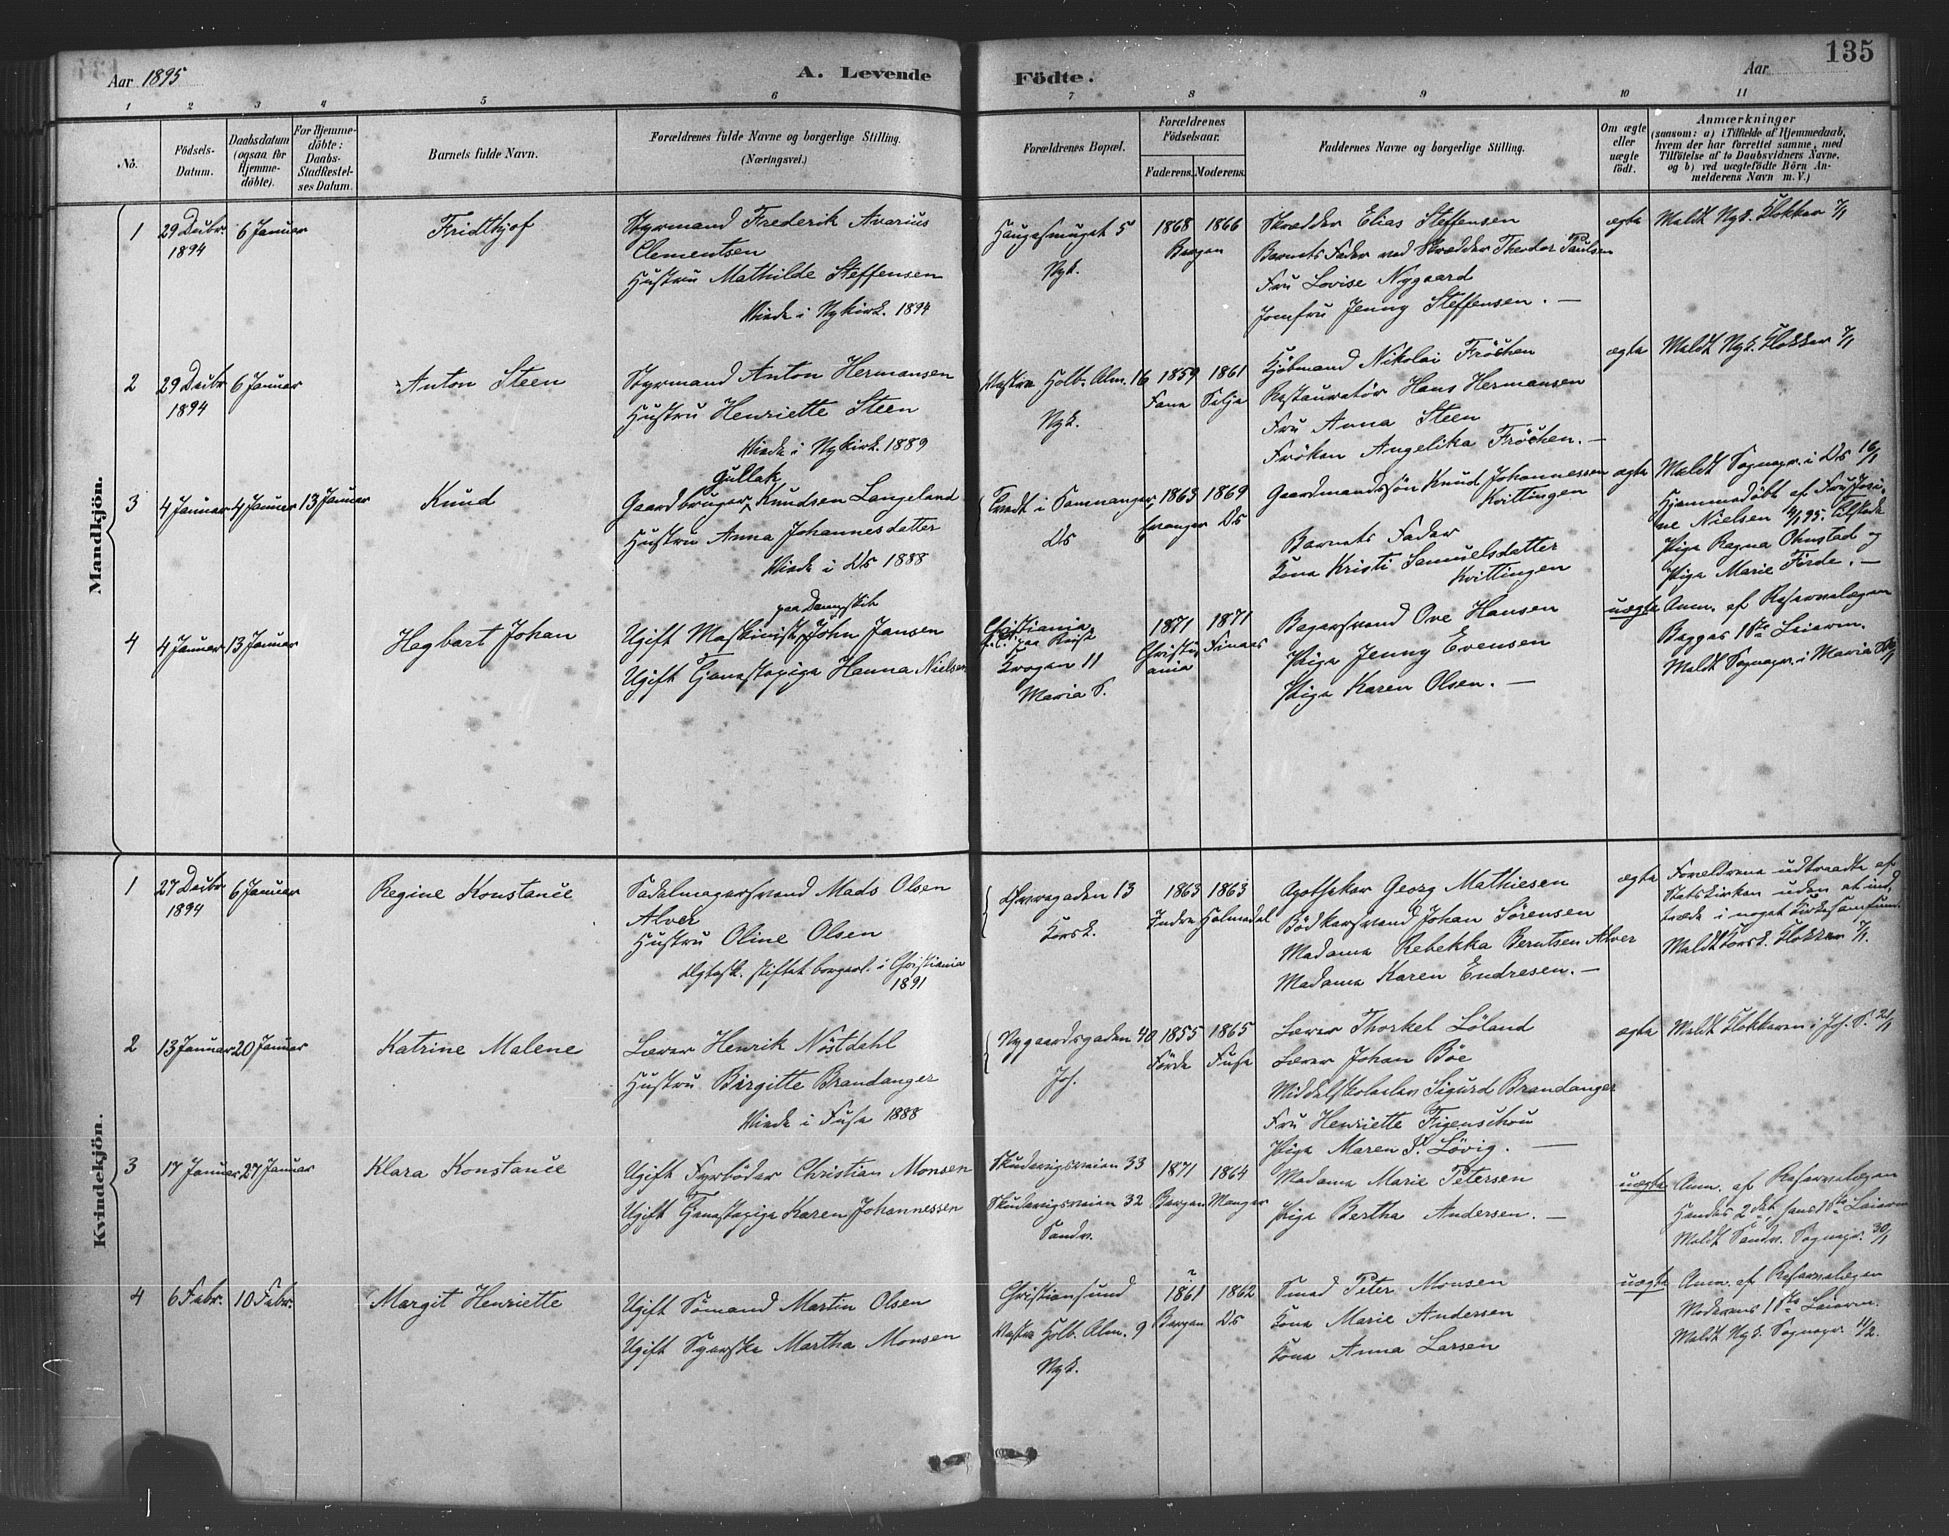 Aar 1895 A. Levende Födte. Aar 135
1 2 3 4 5 6 7 8 9 10 11
No. Födsels-Datum. Daabsdatum (ogsaa for Hjemme-döbte). For Hjemme-döbte: Daabs-Stadfæstel-ses Datum. Barnets fulde Navn. Forældrenes fulde Navne og borgerlige Stilling. (Næringsvei.) Forældrenes Bopæl. Forældrenes Födselsaar. Faderens. Moderens. Faddernes Navne og borgerlige Stilling. Om ægte eller uægte födt. Anmærkninger (saasom: a) i Tilfælde af Hjemmedaab, hvem der har forrettet samme, med Tilföielse af to Daabsvidners Navne, og b) ved uægtefödte Börn An-melderens Navn m. V.)
Mandkjön.
1 29 Decbr 1894 6 Januar Fridthjof
Styrmand Frederik Avarius
Clementsen
Hustru Mathilde Steffensen
Viede i Nykirk. 1894
Haugesmuget 5
Nyk.
1868 1866
Bergen
Skrædder Elias Steffensen
Barnets Fader ved Skrædder Theodor Paulsen
Fru Lovise Nygaard
Jomfru Jenny Steffensen. —
ægte Meldt Nyk. Klokker 7/1
2 29 Decbr 1894 6 Januar Anton Steen
Styrmand Anton Hermansen
Hustru Henriette Steen
Viede i Nykirk. 1889
Vestre Holb. Alm. 16
Nyk.
1859 1861
Fane Selje
Kjöbmand Nikolai Fröchen
Restauratör Hans Hermansen
Fru Anna Steen
Fröken Angelika Fröchen. —
ægte Meldt Nyk. Klokker 7/1
3 4 Januar 4 Januar 13 Januar Knud
Gullak
Gaardbruger Knudsen Langeland
Hustru Anna Johannesdatter
Viede i Ds 1888
Tvedt i Samnanger
Ds
1863 1869
Evanger Ds
Gaardmandssön Knud Johannessen
Kvittingen
Barnets Fader
Kona Kristi Samuelsdatter
Kvittingen
ægte Meldt Sognepr. i Ds 16/1
Hjemmedöbt af Fru Josi-
ne Nielsen 4/1 95. Tilstede
Pige Ragna Ohnstad og
Pige Marie Förde. —
4 4 Januar 13 Januar Hegbart Johan
paa Dampskib
Ugift Maskinist John Jansen
Ugift Tjenestepige Hanna Nielsen
Christiania
paa Reise
Krogen 11
Maria S.
1871 1871
Christi-ania Finaas
Bagersvend Ove Hansen
Pige Jenny Evensen
Pige Karen Olsen. —
uægte Anm. af Reservelægen
Begges 1ste Leierm.
Meldt Sognepr. i Maria
Kvindekjön.
1 27 Decbr 1894 6 Januar Regine Konstance
Sadelmagersvend Mads Olsen
Alver
Hustru Oline Olsen
Ægtesk. stiftet borgerl. i Christiania
1891
13
Korsk.
1863 1863
Indre Holmedal
Apotheker Georg Mathiesen
Bödkersvend Johan Sörensen
Madame Rebekka Berntsen Alver
Madame Karen Endresen. —
ægte Forældrene udtraadte af
Statskirken uden at ind-
træde i noget Kirkesamfund.
Meldt Korsk. Klokker 7/1.
2 13 Januar 20 Januar Katrine Malene
Lærer Henrik Nöstdahl
Hustru Birgitte Brandanger
Viede i Fuse 1888
Nygaardsgaden 40
Joh.
1855 1865
Förde Fuse
Lærer Thorkel Löland
Lærer Johan Böe
Middelskoleelev Sigurd Brandanger
Fru Henriette Figenschou
Pige Maren P. Lövig. —
ægte Meldt Klokkeren i Joh. S. 21/1
3 17 Januar 27 Januar Klara Konstance
Ugift Fyrböder Christian Monsen
Ugift Tjenestepige Karen Johannessen
Skudevigsveien 33
Skudevigsveien 32
Sandv.
1871 1864
Bergen Manger
Madame Marie Petersen
Pige Bertha Andersen. —
uægte Anm. af Reservelægen
Hendes 2det hans 1ste Leierm
Meldt Sandv. Sognepr. 30/1
4 6 Febr. 10 Febr. Margit Henriette
Ugift Sömand Martin Olsen
Ugift Syerske Martha Monsen
Christiansund
Vestre Holb. Alm. 9
Nyk.
?
1861 1862
Bergen Ds
Smed Peter Monsen
Kona Marie Andersen
Kona Anna Larsen
uægte Anm. af Reservelægen
Moderens 1ste Leierm.
Meldt Nyk. Sognepr. 11/2.